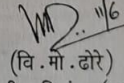 11/6
(वि. मो. ढोरे)